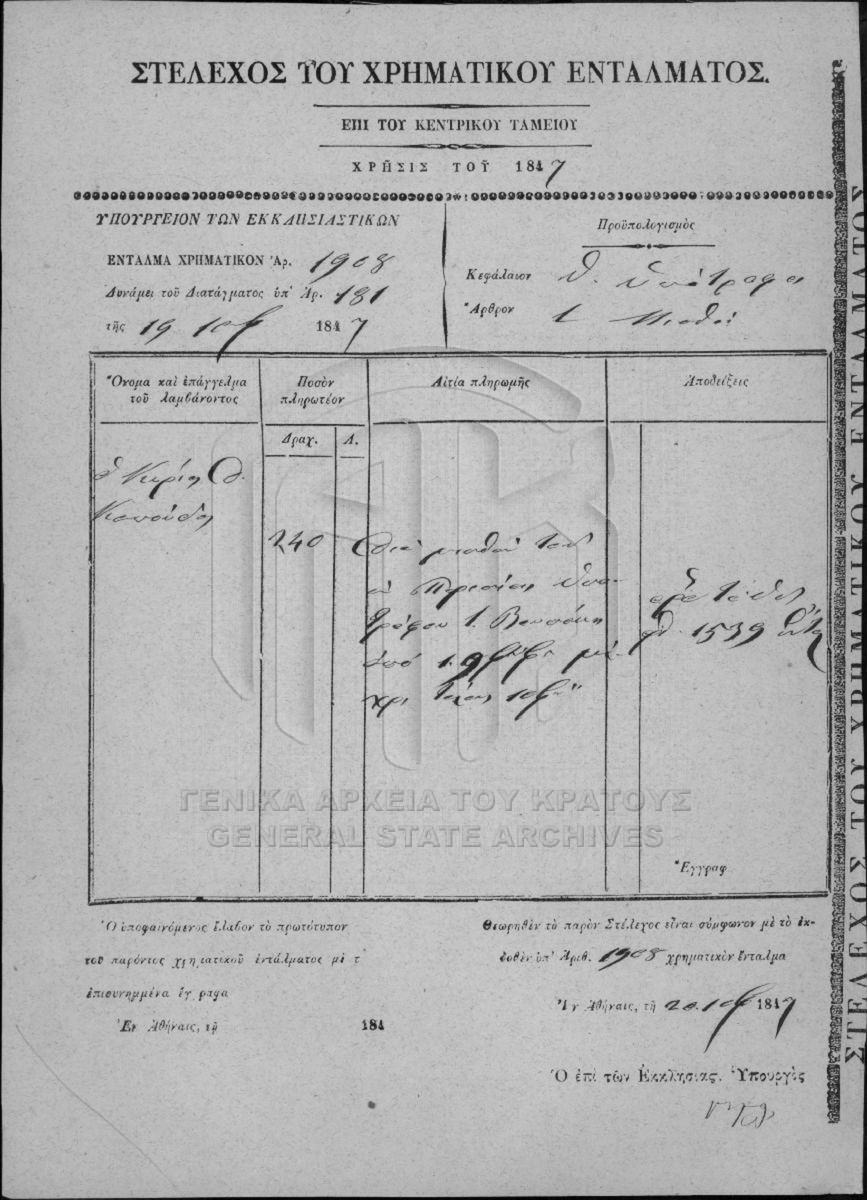 ΣΤΕΛΕΧΟΣ ΤΟΥ ΧΡΗΜΑΤΙΚΟΥ ΕΝΤΑΛΜΑΤΟΣ.
ΕΠΙ ΤΟΥ ΚΕΝΤΡΙΚΟΥ ΤΑΜΕΙΟΥ
ΧΡΗΣΙΣ ΤΟΥ 1847
ΥΠΟΥΡΓΕΙΟΝ ΤΩΝ ΕΚΚΛΗΣΙΑΣΤΙΚΩΝ
ΕΝΤΑΛΜΑ ΧΡΗΜΑΤΙΚΟΝ Ἀρ. 1908
Δυνάμει τοῦ Διατάγματος ὑπ' Ἀρ. 181
τῆς 19 1847
Προϋπολογισμὸς
Κεφάλαιον Θ. Ὑπότροφοι
Ἄρθρον 1 Μισθοὶ
Ὄνομα καὶ ἐπάγγελμα
τοῦ λαμβάνοντος
Ποσὸν
πληρωτέον
Αἰτία πληρωμῆς
Ἀποδείξεις
Δραχ.
Λ.
240
Διὰ μισθοὺς τοῦ
ἐν
τρόφου
ἀπὸ 1 μέ-
χρι τέλους
1539
Ἔγγραφ
Ὁ ὑποφαινόμενος ἔλαβον τὸ πρωτότυπον
τοῦ παρόντος χρηματικοῦ ἐντάλματος μὲ τ
ἐπισυνημμένα ἔγγραφα
Ἐν Ἀθήναις, τῇ 184
Θεωρηθὲν τὸ παρὸν Στέλεχος εἶναι σύμφωνον μὲ τὸ ἐκ-
δοθὲν ὑπ' Ἀριθ. 1908 χρηματικὸν ἔνταλμα
Ἐν Ἀθήναις, τῇ 20 1847
Ὁ ἐπὶ τῶν Ἐκκλησιας. Ὑπουργὸς
ΣΤΕΛΕΧΟΣ ΤΟΥ ΧΡΗΜΑΤΙΚΟΥ ΕΝΤΑΛΜΑΤΟΣ
ΓΕΝΙΚΑ ΑΡΧΕΙΑ ΤΟΥ ΚΡΑΤΟΥΣ
GENERAL STATE ARCHIVES